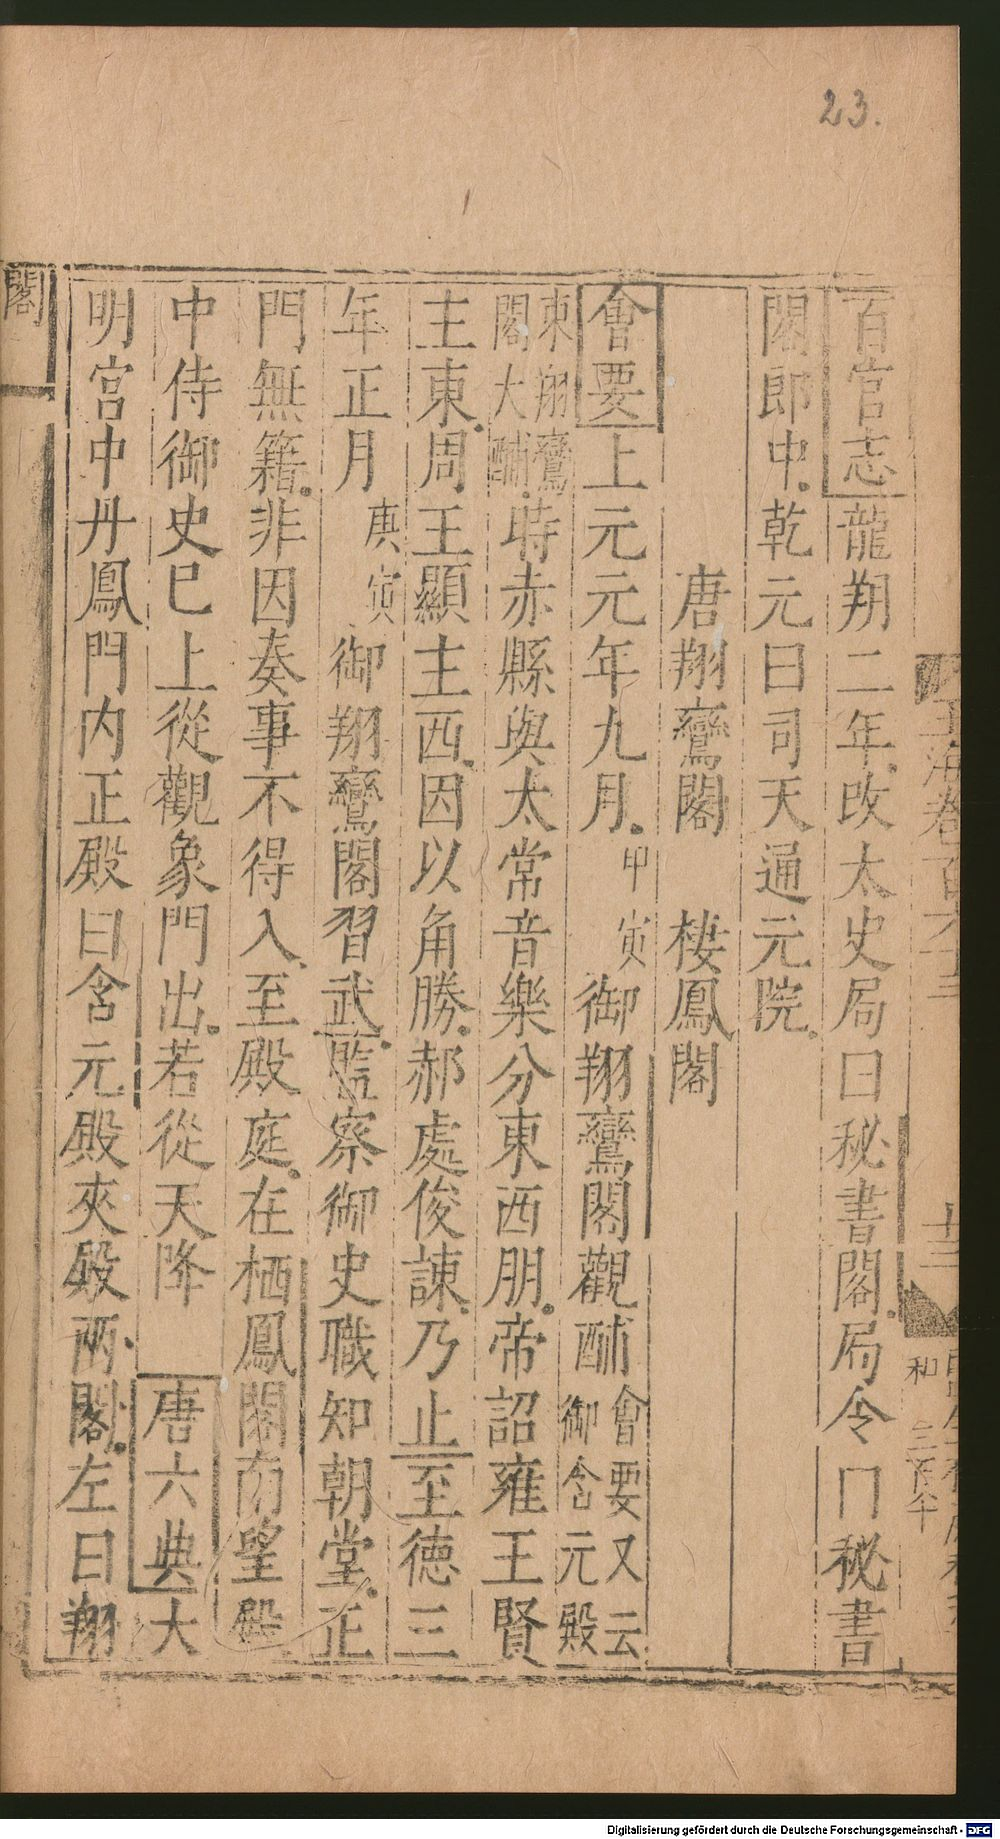 23.
百官志龍翔二年改太史局曰秘書閣局令曰秘書
閣郎中乾元曰司天通元院
唐翔鸞閣 棲鳳閣
會要上元元年九月甲寅御翔鸞閣觀酺會要又云御含元殿
東翔鸞閣大酺時赤縣與太常音樂分東西朋帝詔雍王賢
主東周王顯主西因以角勝郝處俊諫乃止至德三
年正月庚寅御翔鸞閣習武監察御史職知朝堂正
門無籍非因奏事不得入至殿庭在栖鳳閣南望殿
中侍御史已上從觀象門出若從天降唐六典大
明宮中丹鳳門内正殿曰含元殿夾殿兩閣左曰翔
閣
玉海卷百六十三
十三
和
Digitalisierung gefördert durch die Deutsche Forschungsgemeinschaft - DFG